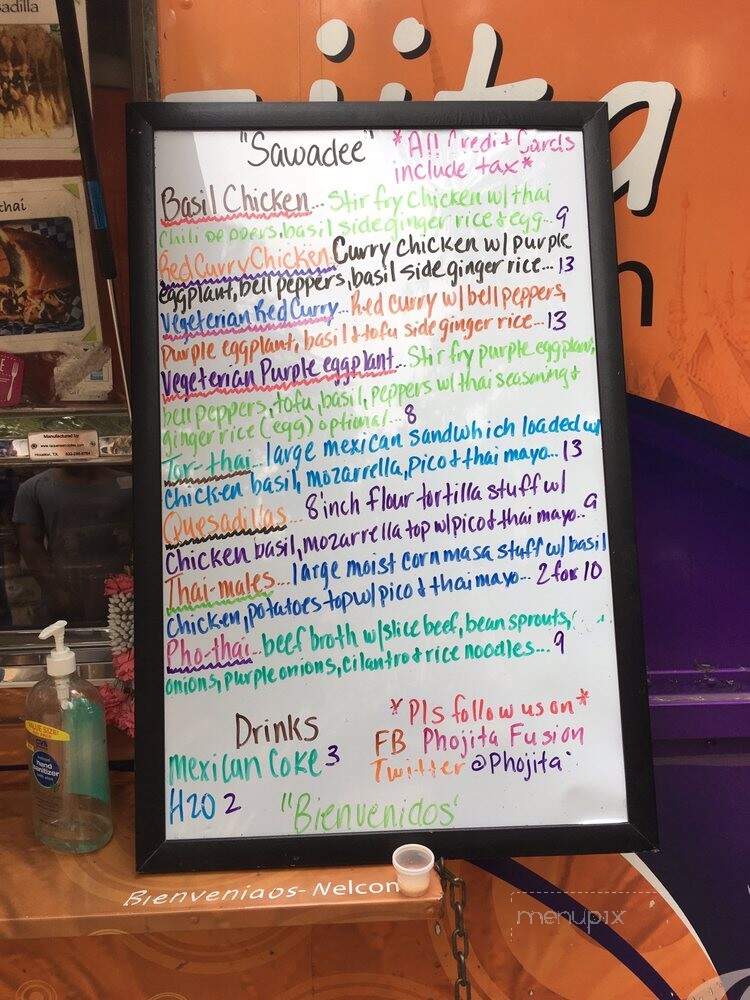 adilla
thai
Manufactured by
Houston, TX
jita
n
"Sawadee"
*All Credit Cards
include tax*
Basil Chicken... Stir fry chicken w/ thai
Chili peppers, basil side ginger rice & egg... 9
Red Curry Chicken: Curry chicken w/ purple
eggplant, bell peppers, basil side ginger rice... 13
Vegeterian Red Curry... Red curry w/ bell peppers,
Purple eggplant, basil & tofu side ginger rice... 13
Vegeterian Purple eggplant... Stir fry purple eggplant,
bell peppers, tofu, basil, peppers w/ thai seasoning &
ginger rice (egg) optional... 8
Tor-thai... large mexican sandwhich loaded w/
Chicken basil, mozarrella, pico & thai mayo... 13
Quesadillas... 8 inch flour tortilla stuff w/
Chicken basil, mozarrella top w/ pico & thai mayo.. 9
Thai-males... large moist corn masa stuff w/ basil
Chicken, potatoes top w/ pico & thai mayo... 2 for 10
Pho-thai... beef broth w/ slice beef, bean sprouts,
onions, purple onions, cilantro & rice noodles... 9
Drinks
Mexican Coke 3
H2O 2
*Pls follow us on*
FB Phojita Fusion
Twitter @Phojita
"Bienvenidos'
VALUE SIZE!
hand
sanitizer
Bienvenidos- Nelcon
menupix